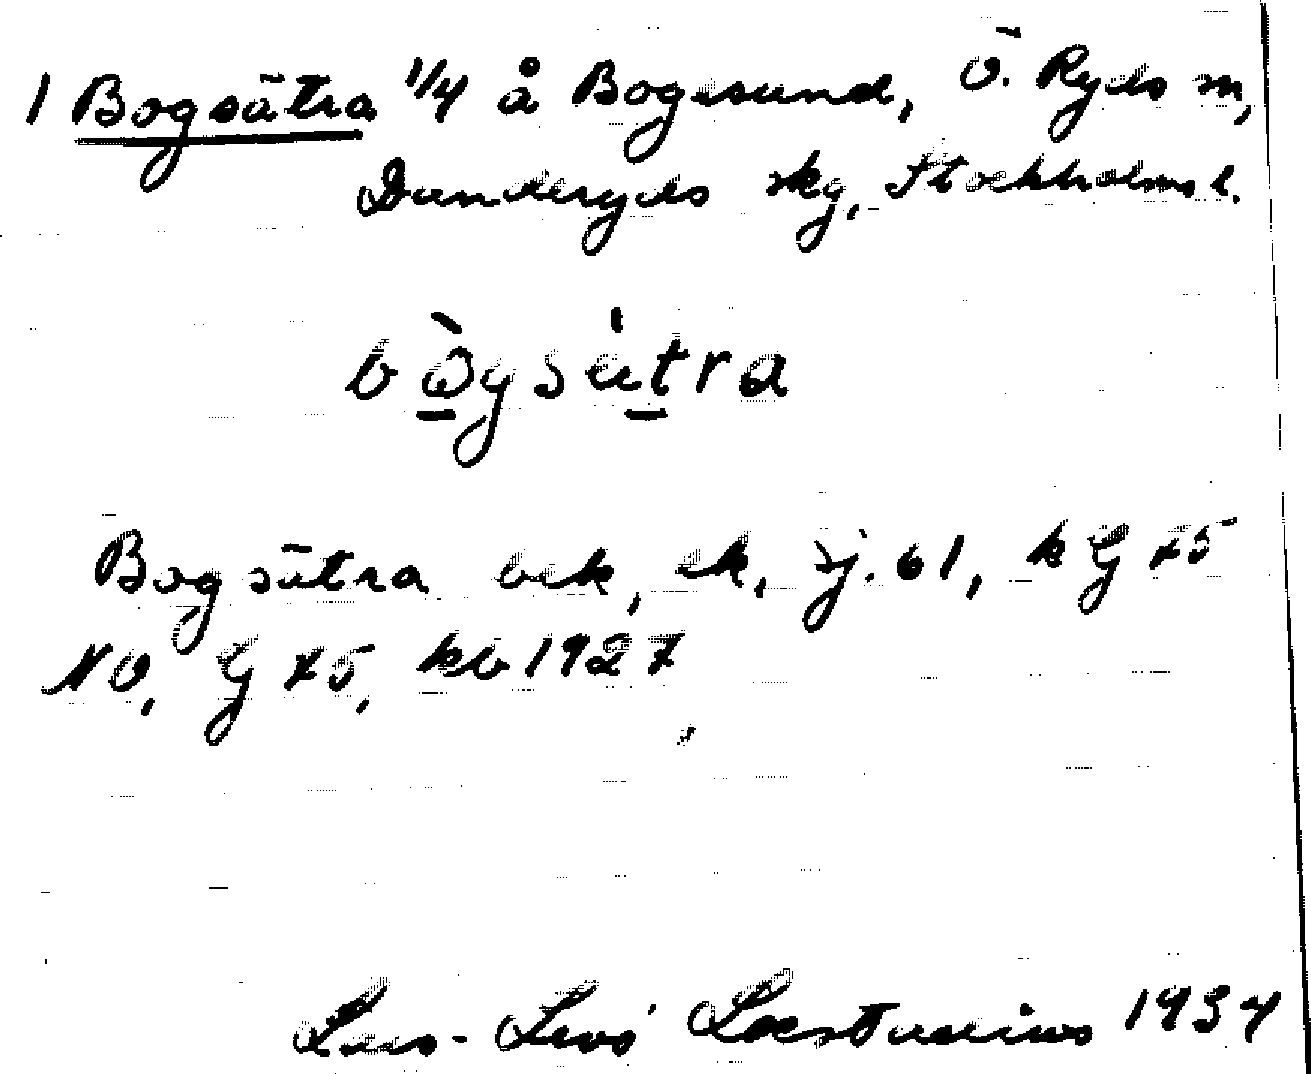 1 Bogsätra 1/4 å Bogesund, Ö. Ryds sn,
Danderyds skg, Stockholms l.
bògsätra
Bogsätra bek, ek, sj. 61, k G 75
NO, G 75, kb 1927
Lars-Levi Læstadius 1934